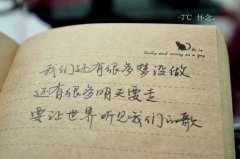 -7℃ 怀念。
我们还有很多梦没做
还有很多明天要走
要让世界听见我们的歌